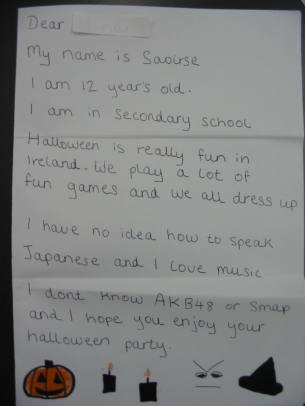 Dear
My name is Saoirse
I am 12 year's old.
I am in Secondary school
Halloween is really fun in
Ireland. We play a lot of
fun games and we all dress up
I have no idea how to speak
Japanese and I love music
I dont know AKB48 or Smap
and I hope you enjoy your
halloween party.